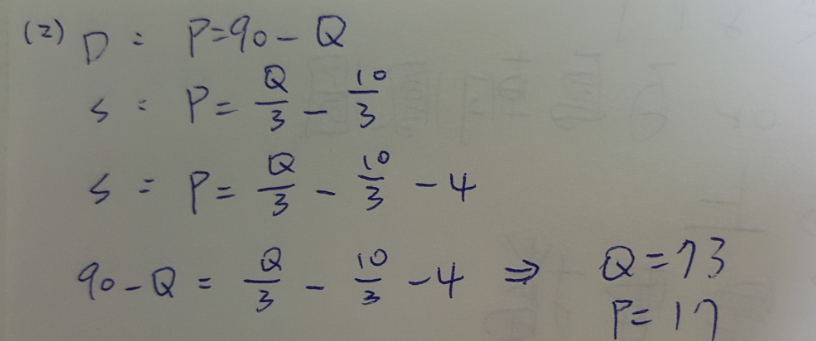 (2) D : P=90-Q
S : P= Q/3 - 10/3
S : P= Q/3 - 10/3 - 4
90-Q = Q/3 - 10/3 - 4 ⇒ Q=73
P=17